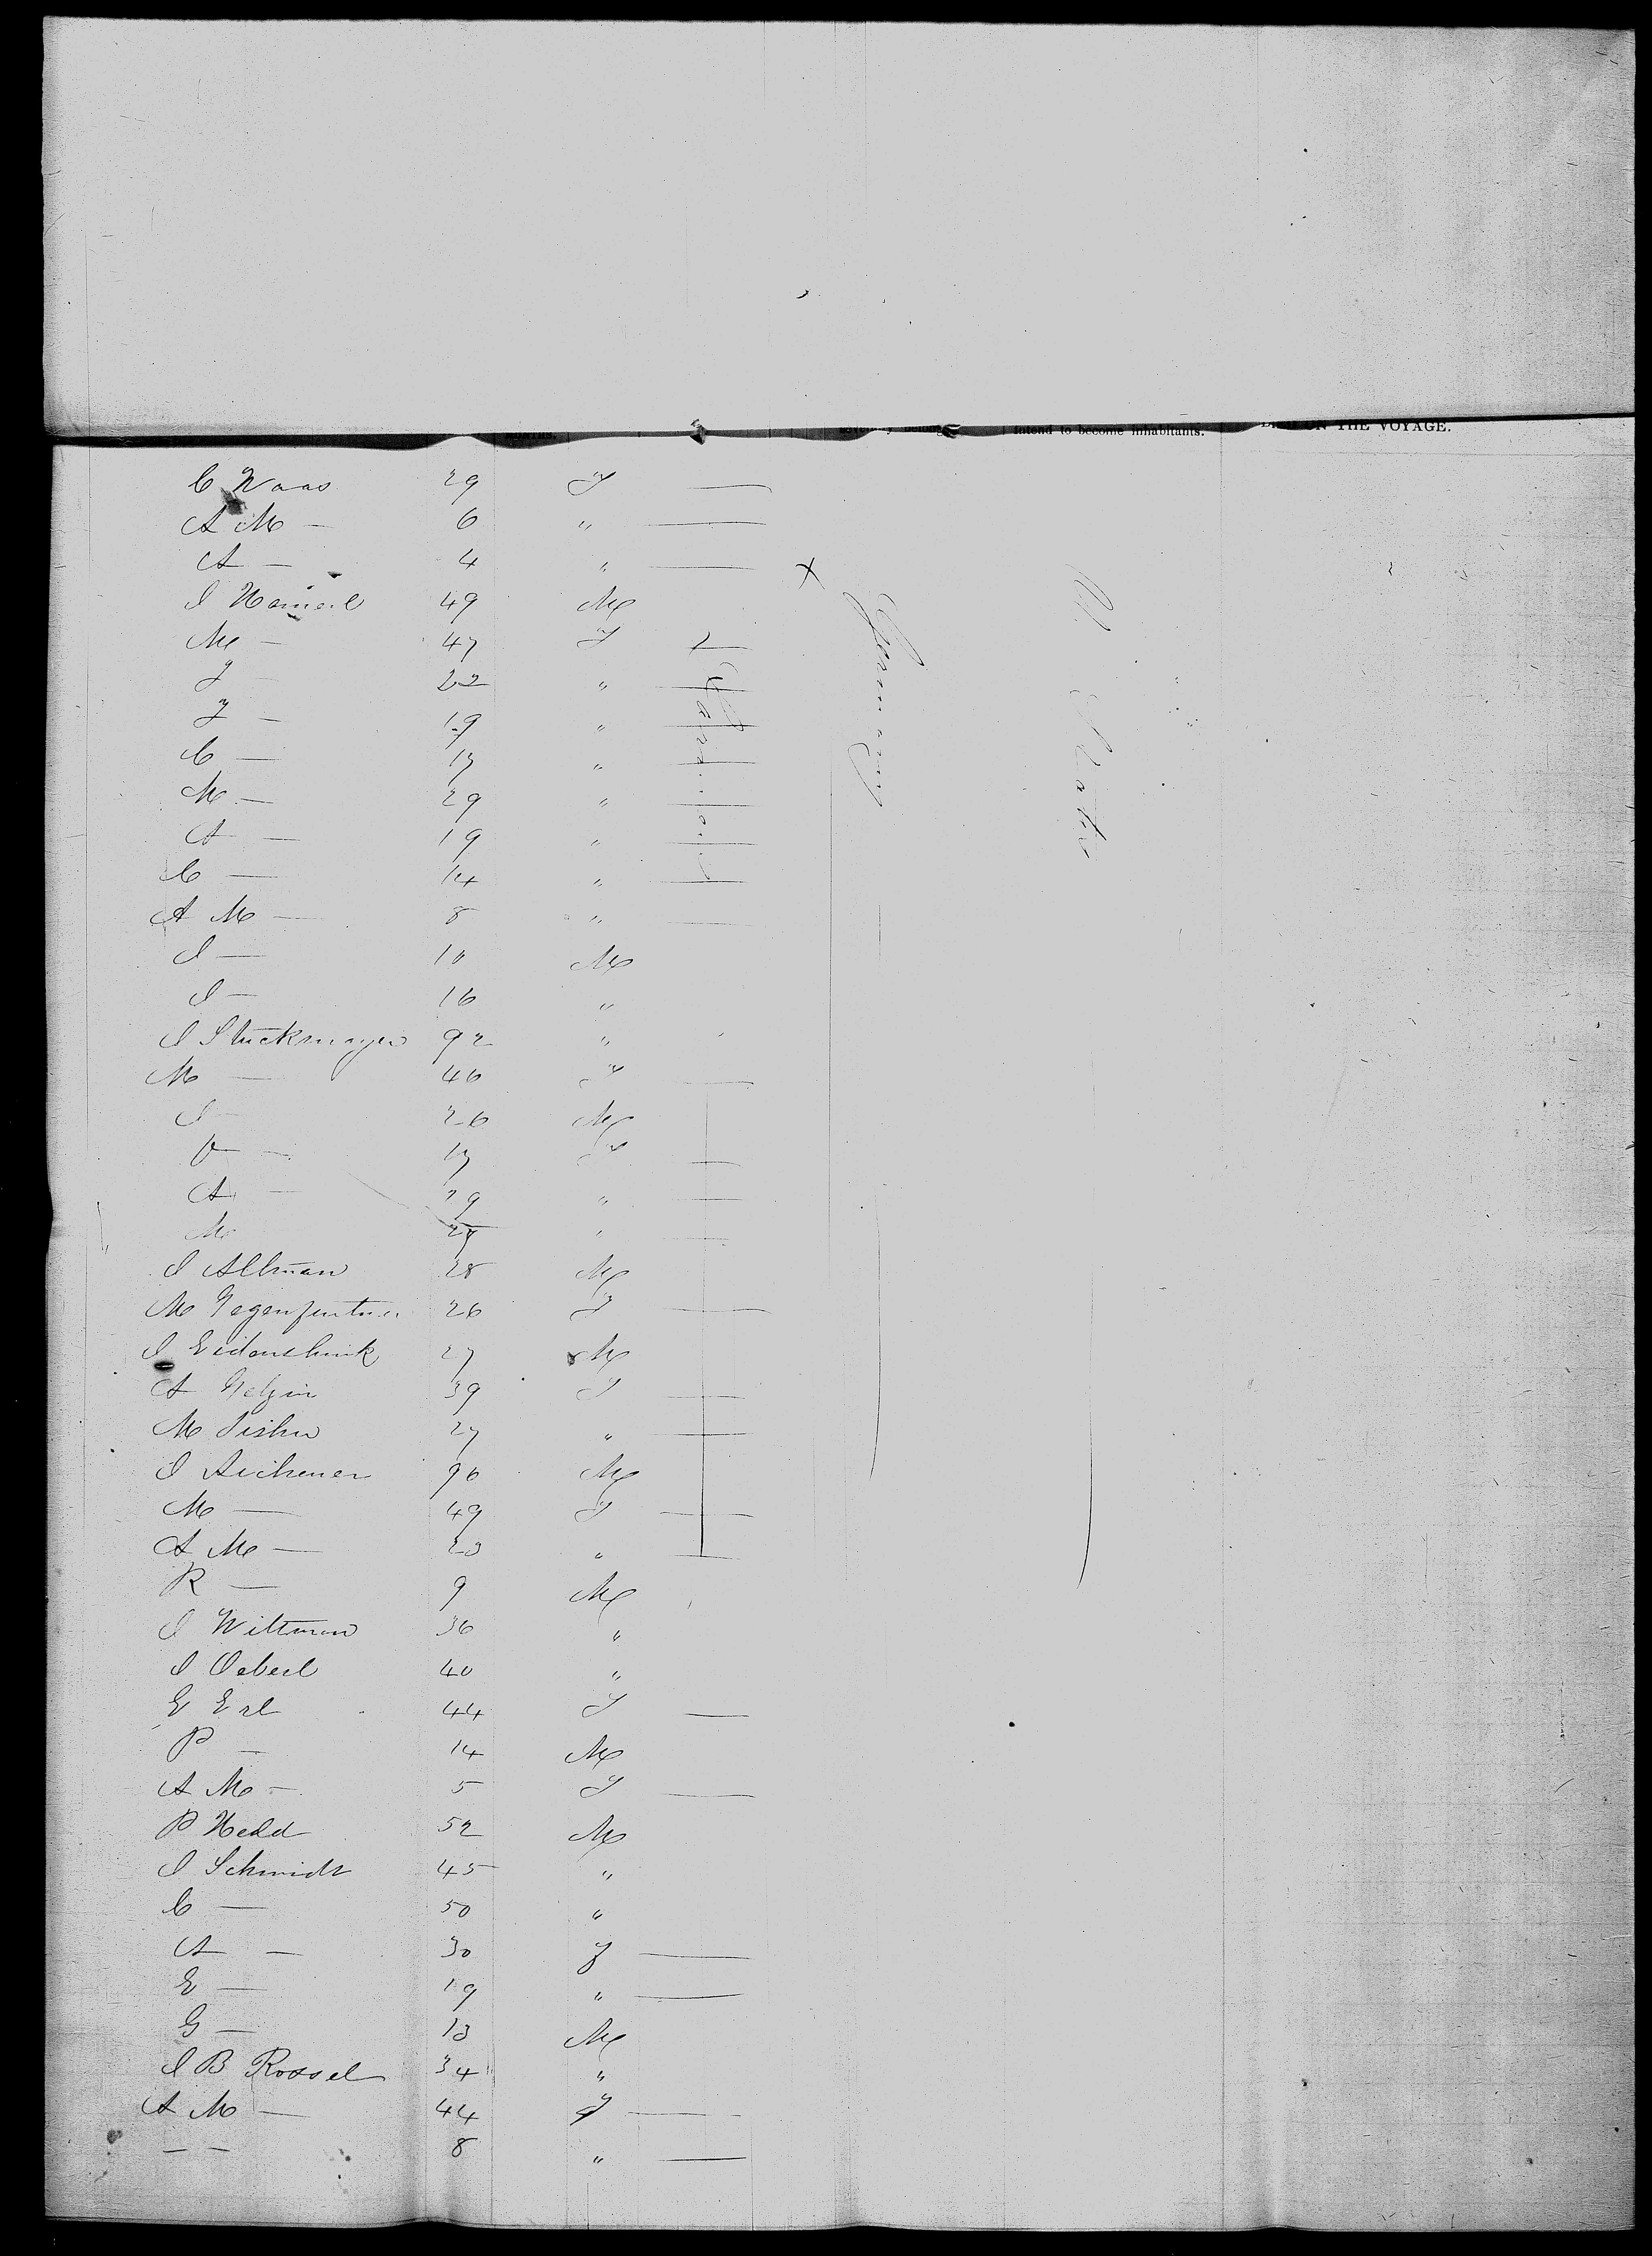 MONTHS. Intend to become inhabitants. ON THE VOYAGE.
C Waas 29 F —
A M — 6 " —
A — 4 " —
I 49 M
M — 47 F —
F — 22 " —
F — 19 " —
C — 17 " —
M — 29 " —
A — 19 " —
C — 14 " —
A M — 8 " —
I — 10 M
I — 16 "
I Stuckmayer 92 "
M — 46 F —
I — 26 M
— 17 F —
A — 29 " —
M 27 " —
I Altman 28 M
M 26 F —
I Eidenshink 27 M
A 39 F —
M Fisher 27 " —
I Aichener 96 M
M — 49 F —
A M — 23 " —
R — 9 M
I Wittman 36 "
I Oeberl 40 "
E Erl 44 F —
P — 14 M
A M — 5 F —
P Hedd 52 M
I Schmidt 45 "
C — 50 "
A — 30 F —
E — 19 " —
G — 13 M
I B Rossel 34 "
A M — 44 F —
— — 8 " —
Germany
U States